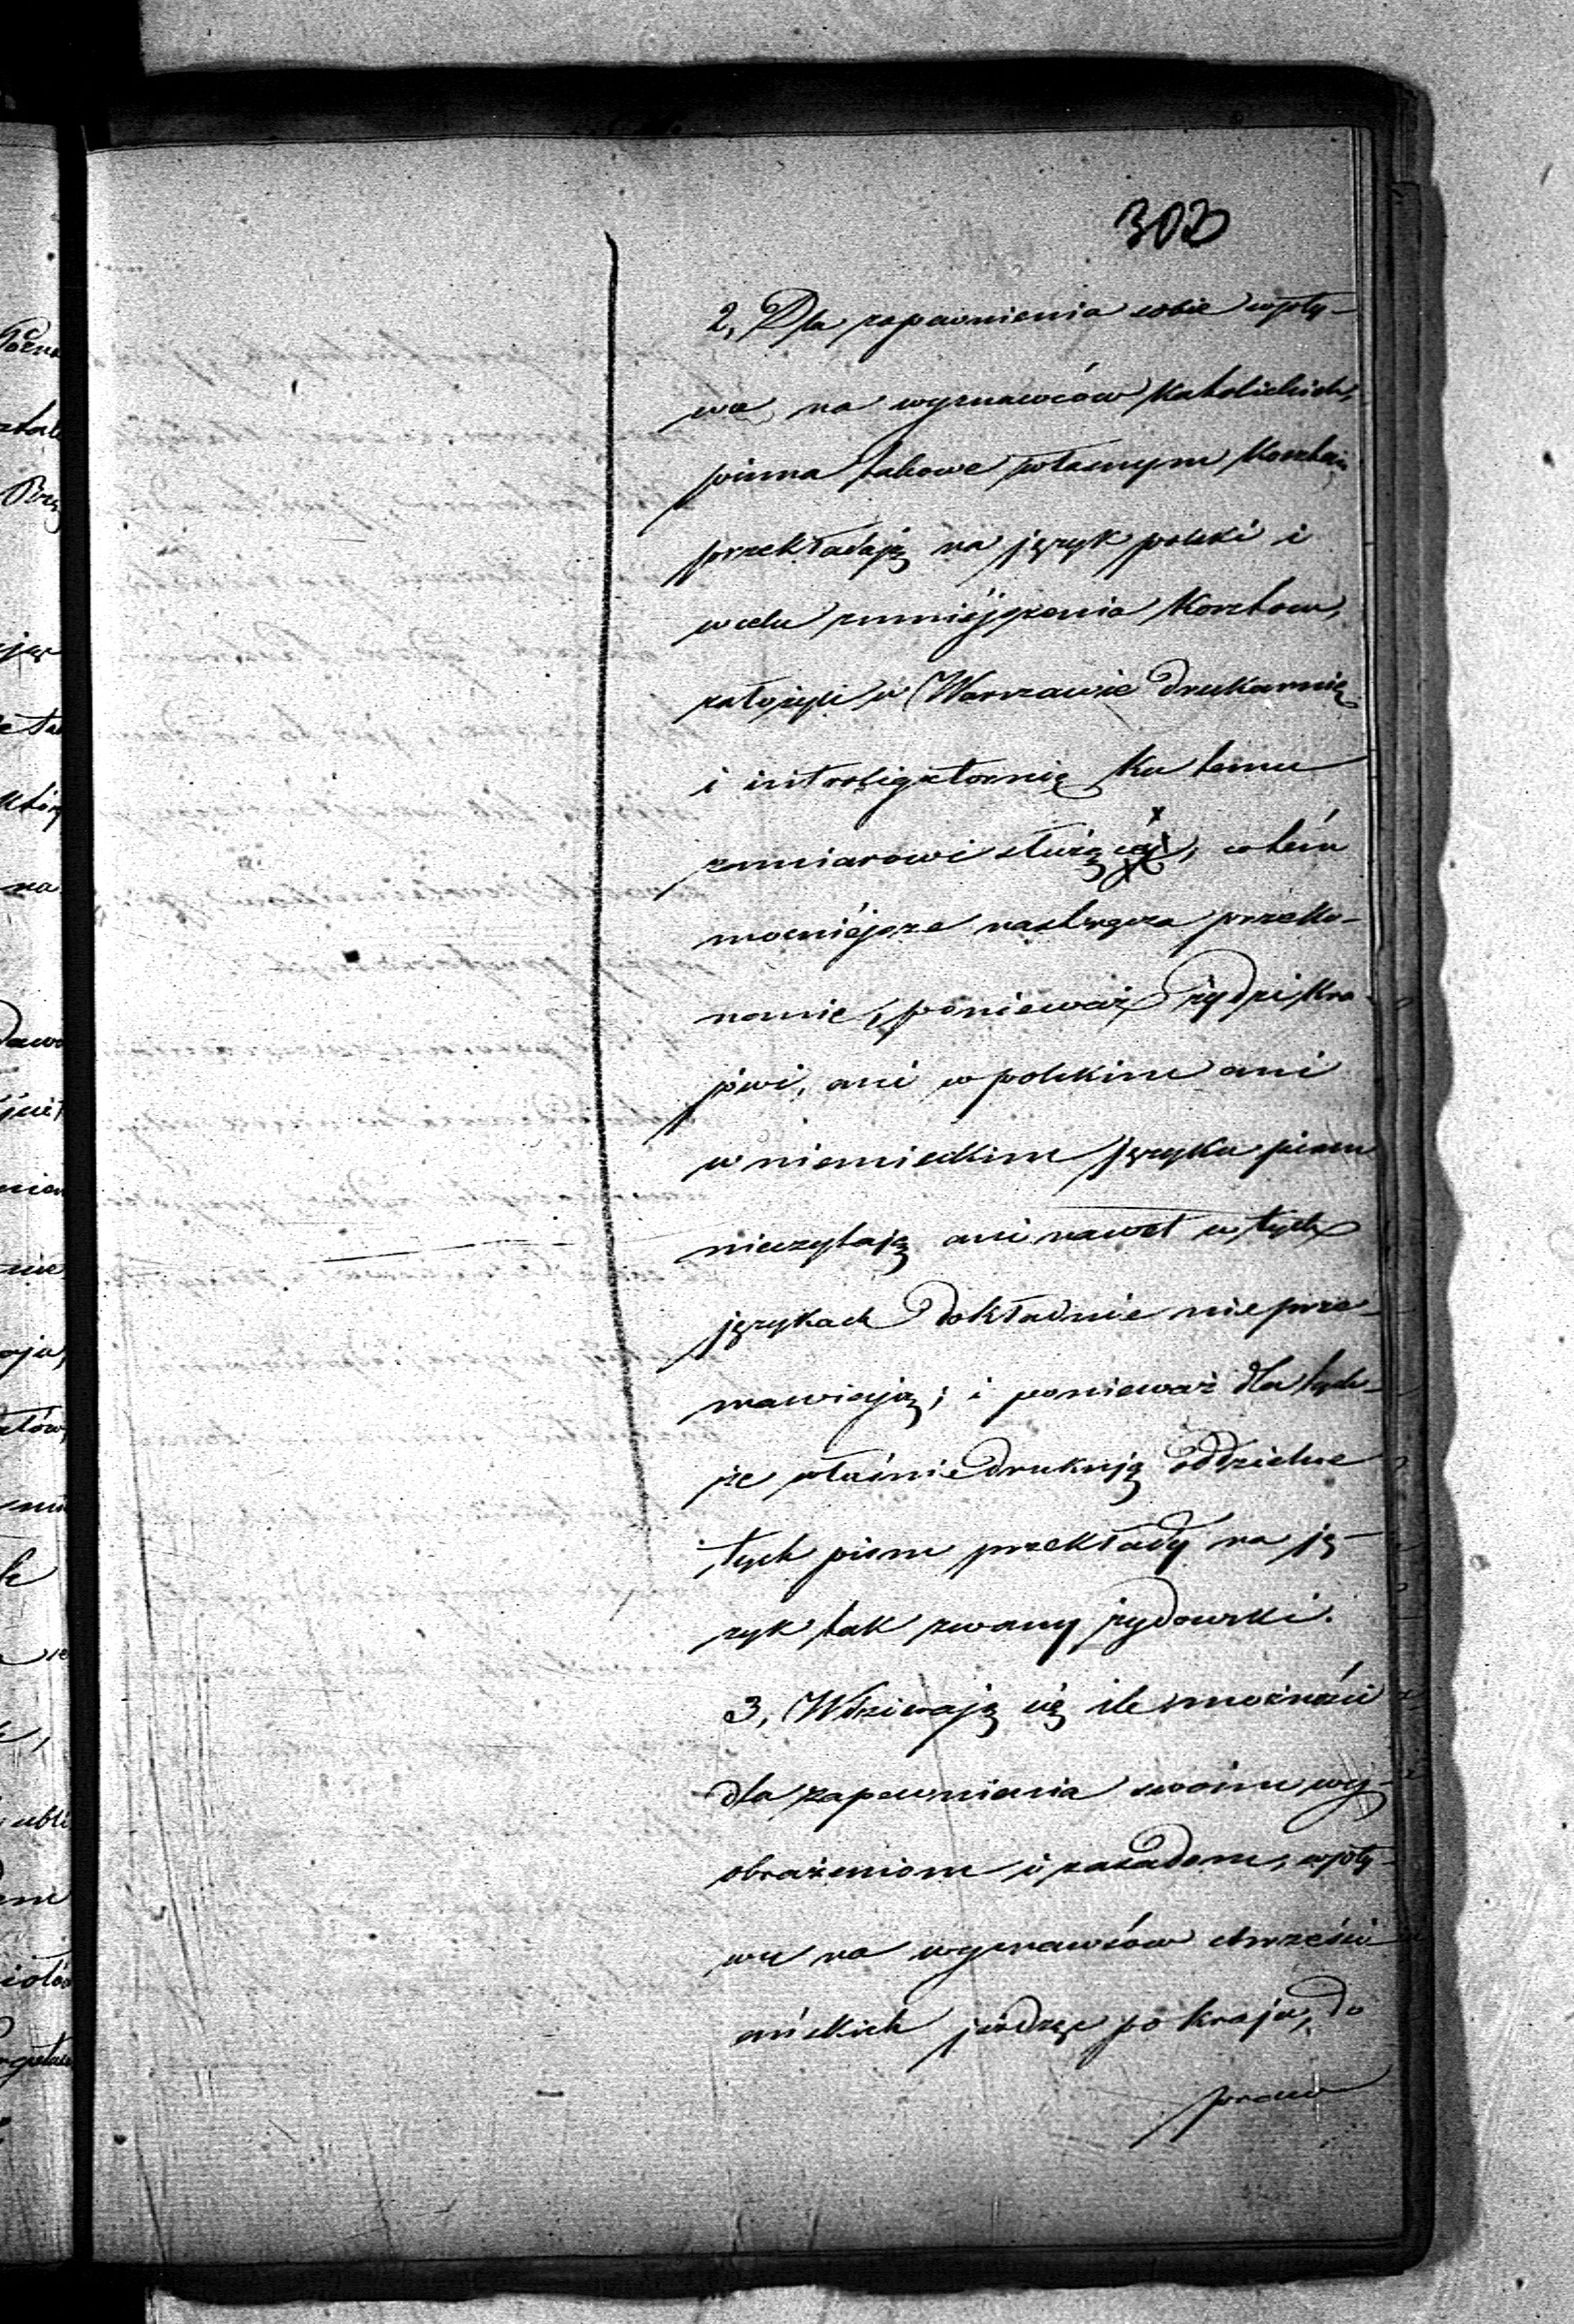 302
2, Dla zapewnienia sobie wpły-
wu na wyznawców Katolickich,
pisma takowe własnym Kosztem
przekładają na język polski i
w celu zmniejszenia Kosztów,
założyli w Warszawie drukarnią
i introligatornią Ku temu
zamiarowi służącą, co tém
mocniéjsze nastręcza przeko-
nanie, ponieważ żydzi Kra-
jowi, ani w polskim ani
w niemieckim języku pism
nieczytają ani nawet w tych
językach dokładnie nieprze-
mawiają; i ponieważ dla tych-
że właśnie drukują oddzielne
tych pism przekłady na ję-
zyk tak zwany żydowski.
3, Wdzierają się ile możności
dla zapewnienia swoim wy-
obrażeniom i zasadom, wpły-
wu na wyznawców chrześci-
ańskich jeżdżąc po kraju, do
praw